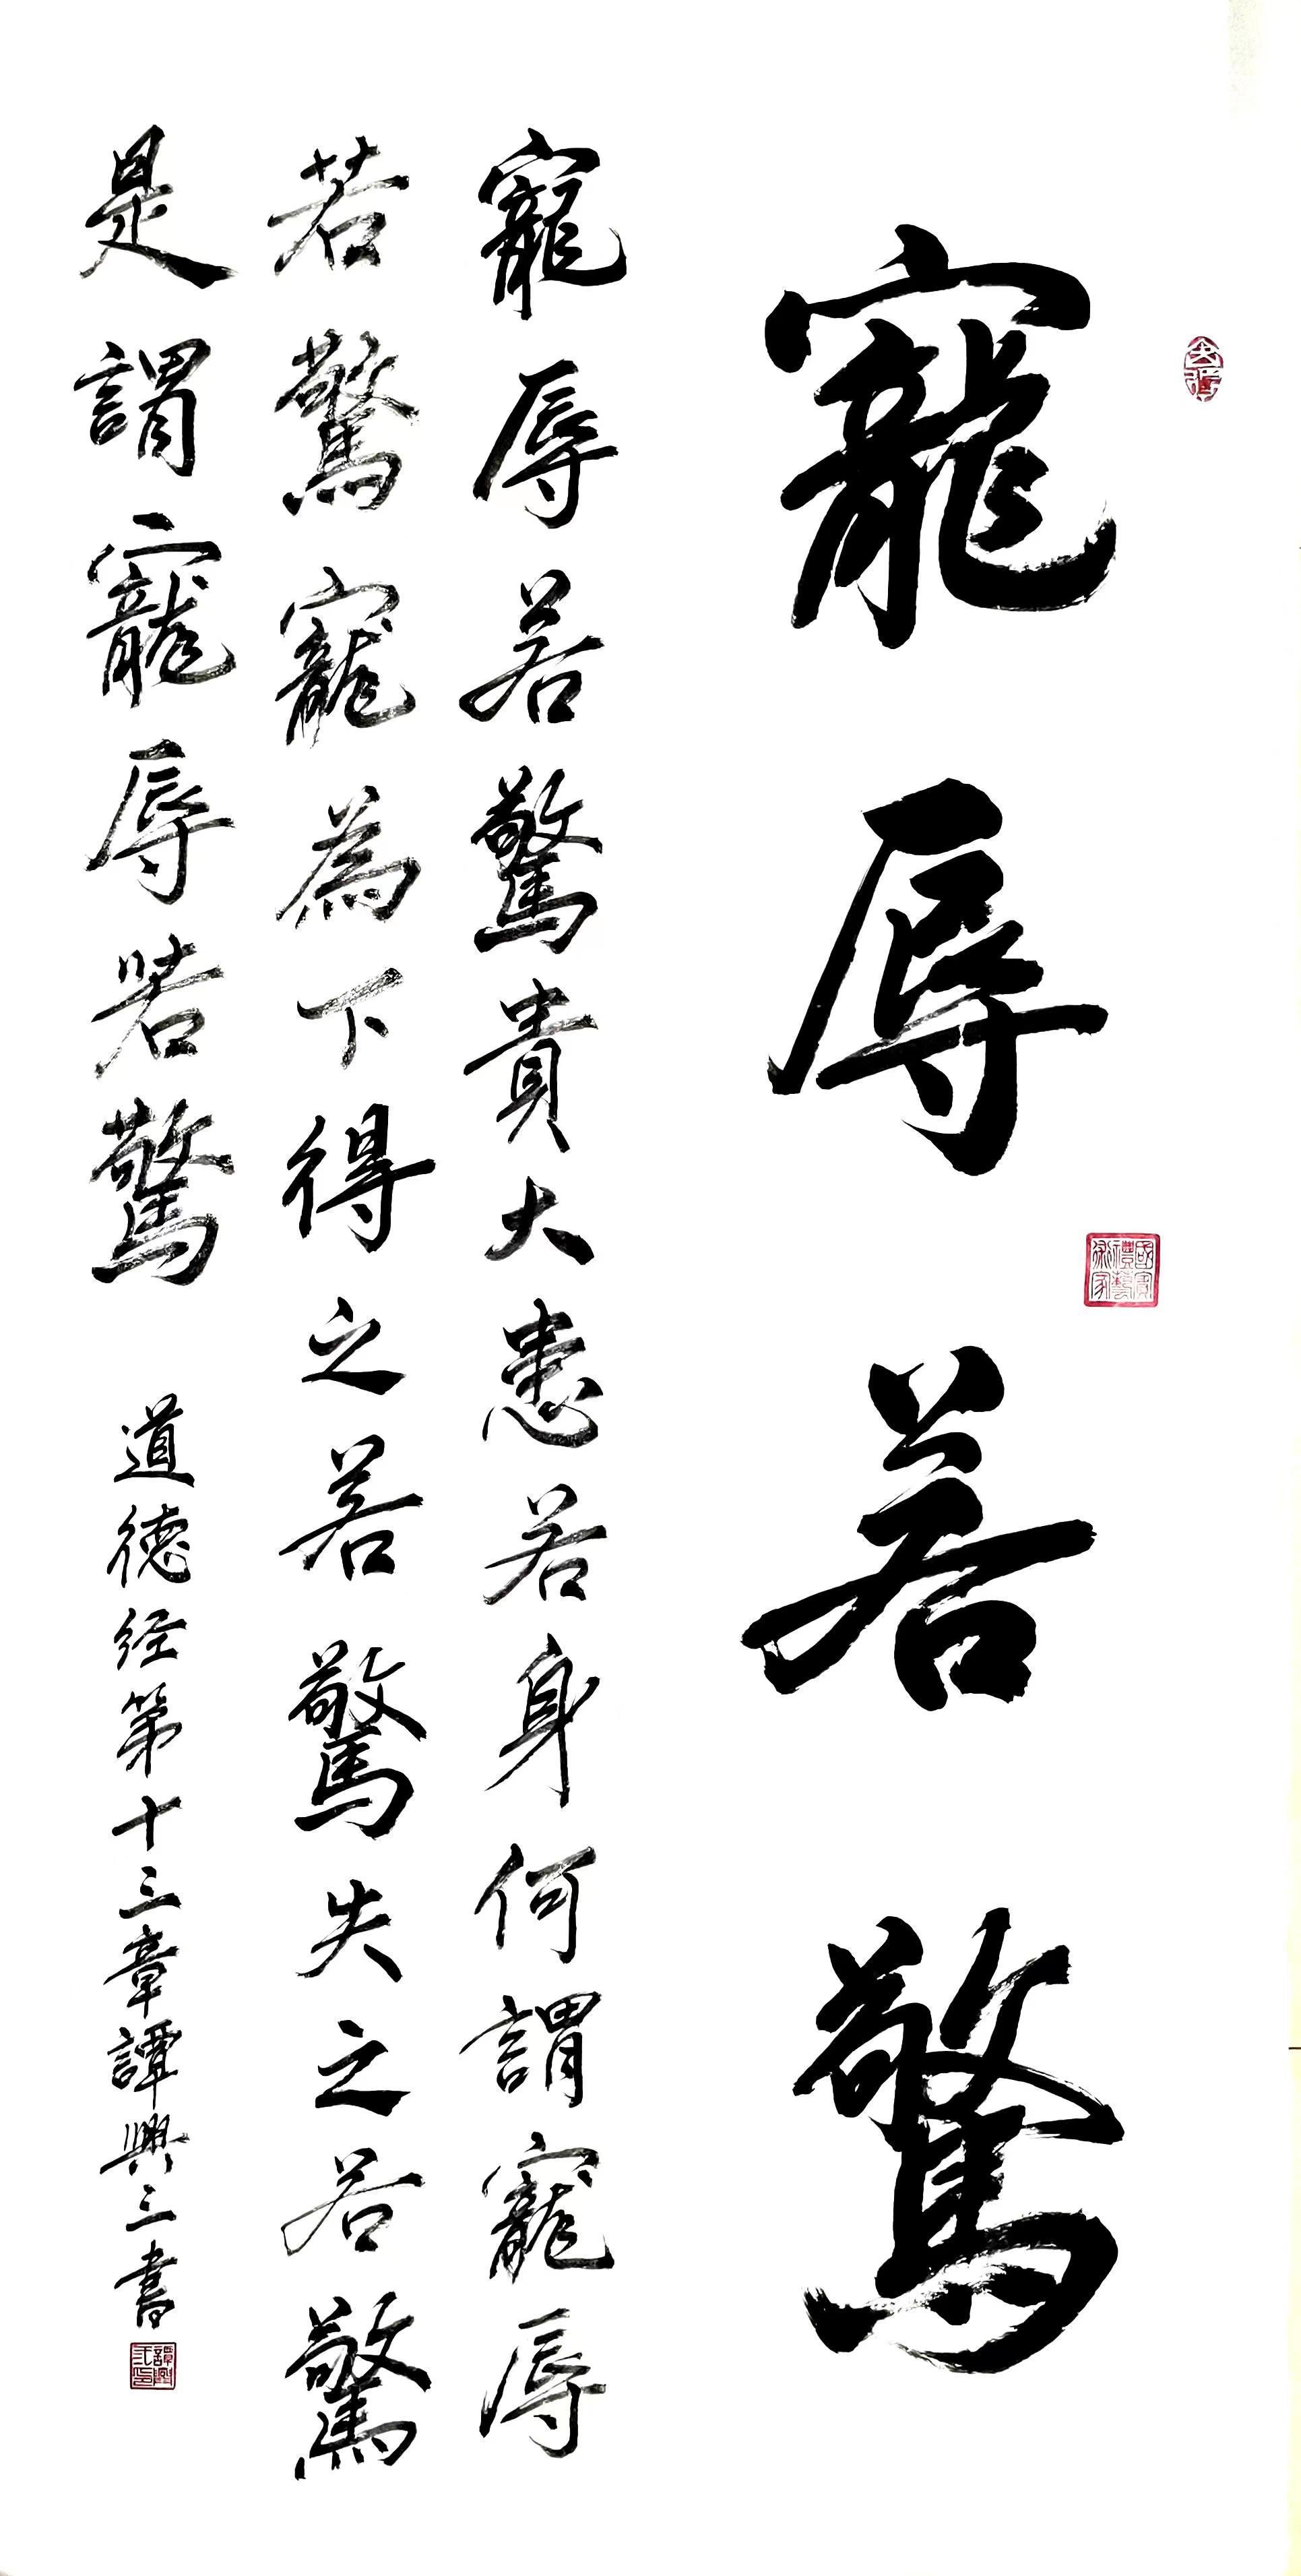 寵辱若驚
寵辱若驚貴大患若身何謂寵辱
若驚寵為下得之若驚失之若驚
是謂寵辱若驚
道德经第十三章譚興三書
國賓禮藝術家